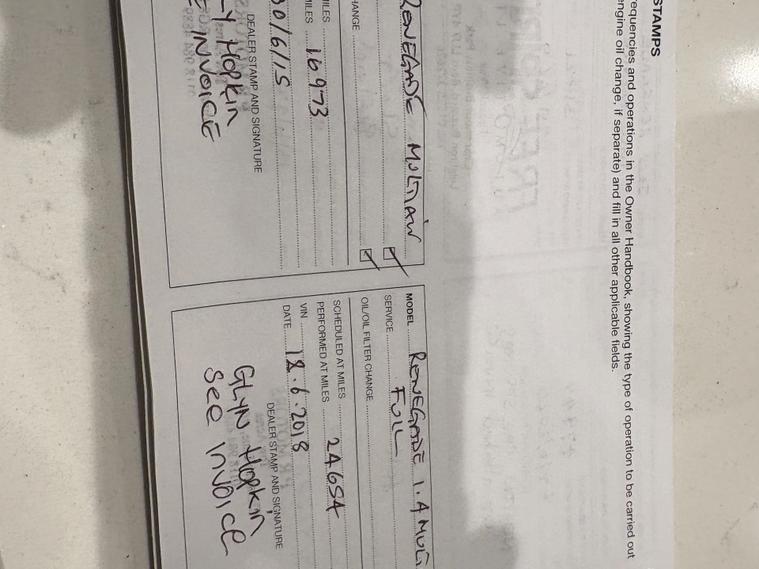 STAMPS
requencies and operations in the Owner Handbook, showing the type of operation to be carried out
engine oil change, if separate) and fill in all other applicable fields.
RENEGADE MULTIAIR
HANGE
MILES
MILES 16973
30/6/15
DEALER STAMP AND SIGNATURE
HOPKIN
INVOICE
MODEL RENEGADE 1.4 MULTI
SERVICE FULL
OIL/OIL FILTER CHANGE
SCHEDULED AT MILES
PERFORMED AT MILES 24654
VIN
DATE 18.6.2018
DEALER STAMP AND SIGNATURE
GLYN HOPKIN
SEE INVOICE